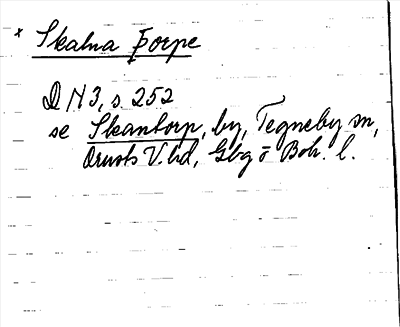 * Skalna Þorpe
DN 3, s. 252
se Skantorp, by, Tegneby sn,
Orusts V. hd, Gbg o Boh. l.